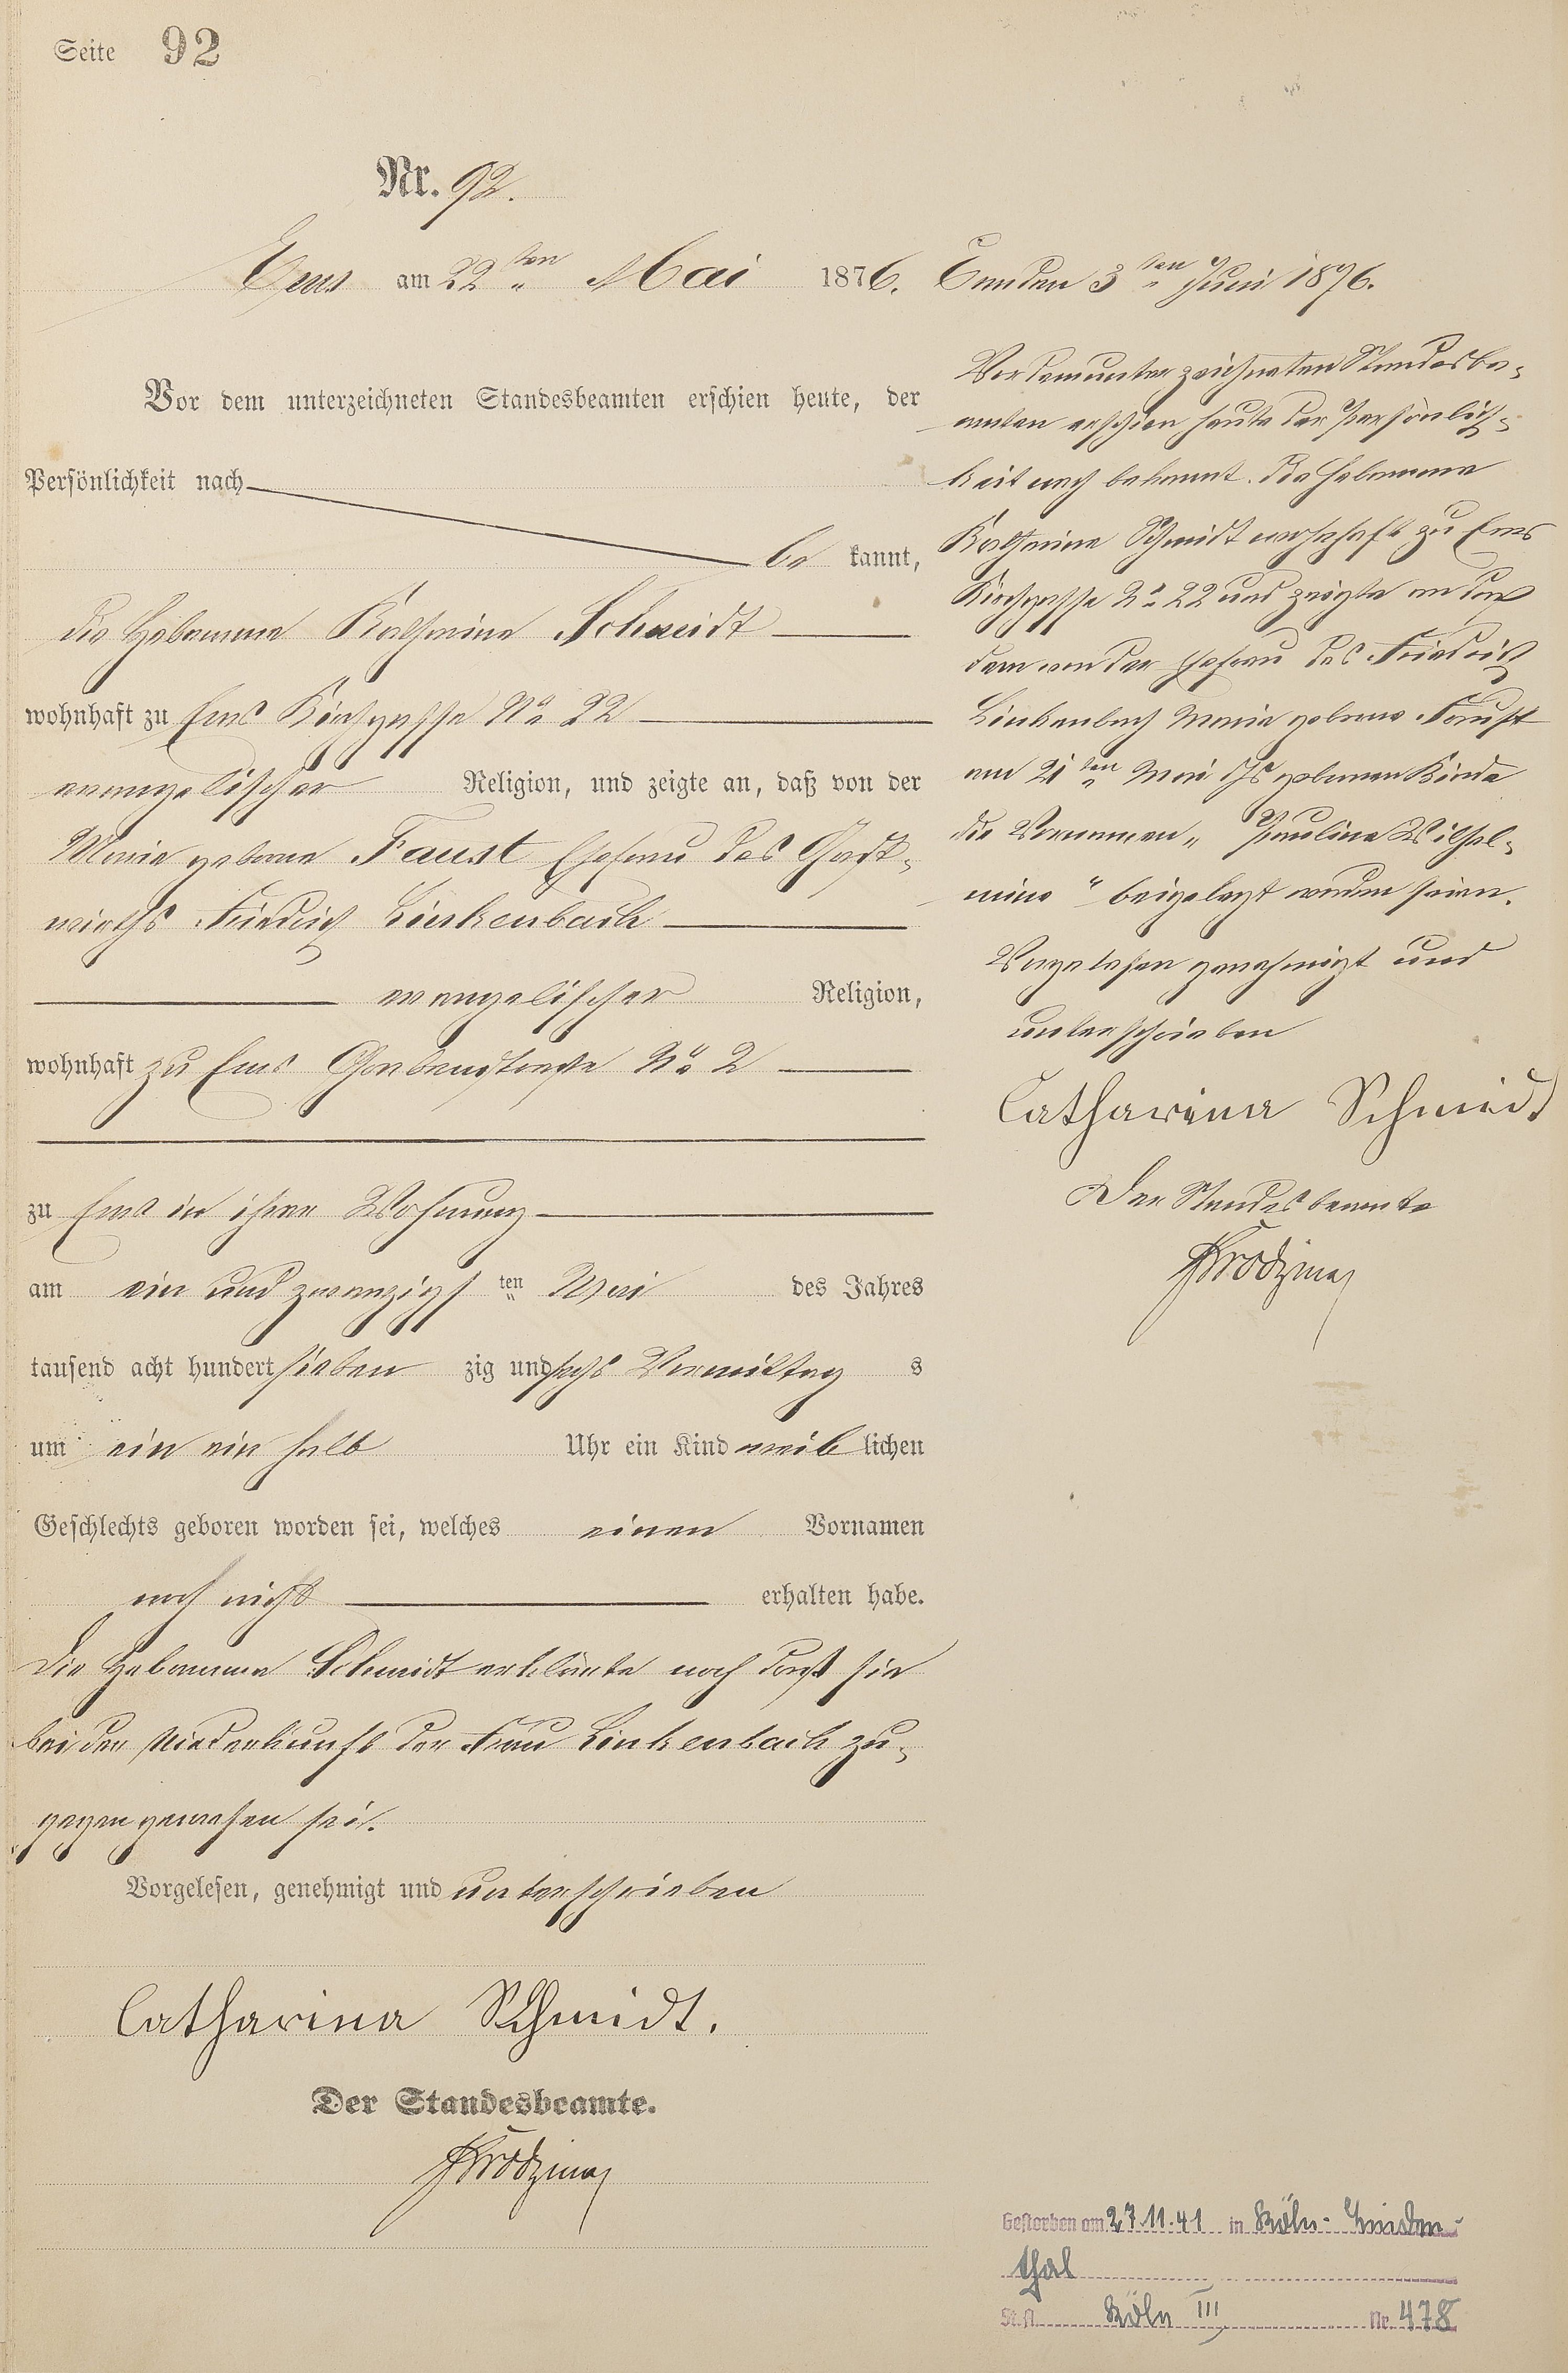 Seite 92
Nr. 92.
Ems am 22ten Mai 1876.
Vor dem unterzeichneten Standesbeamten erschien heute, der
Persönlichkeit nach
be kannt,
die Hebamme Katharina Schmidt
wohnhaft zu Ems Kirchgasse No 22
evangelischer Religion, und zeigte an, daß von der
Marie geborne Faust Ehefrau des Gast-
wirths Friedrich Linkenbach
evangelischer Religion,
wohnhaft zu Ems Grabenstraße No 2
zu Ems in ihrer Wohnung
am ein und zwanzigsten Mai des Jahres
tausend acht hundert sieben zig und sechs Vormittag s
um ein ein halb Uhr ein Kind weib lichen
Geschlechts geboren worden sei, welches einen Vornamen
noch nicht erhalten habe.
Die Hebamme Schmidt erklärte noch daß sie
bei der Niederkunft der Frau Linkenbach zu-
gegen gewesen sei.
Vorgelesen, genehmigt und unterschrieben
Catharina Schmidt.
Der Standesbeamte.
Ems den 3ten Juni 1876.
Vor dem unterzeichneten Standesbe-
amten erschien heute der Persönlich-
keit nach bekannt. Die Hebamme
Katharina Schmidt wohnhaft zu Ems
Kirchgasse No 22 und zeigte an daß
dem von der Ehefrau des Friedrich
Linkenbach Marie geborne Faust
am 21ten Mai d Js gebornen Kinde
die Vornamen „Pauline Wilhel-
mine" beigelegt worden seien.
Vorgelesen genehmigt und
unterschrieben
Catharina Schmidt
Der Standesbeamte
Gestorben am 27.11.41 in Köln-Linden-
thal
St.A. Köln III, Nr. 478